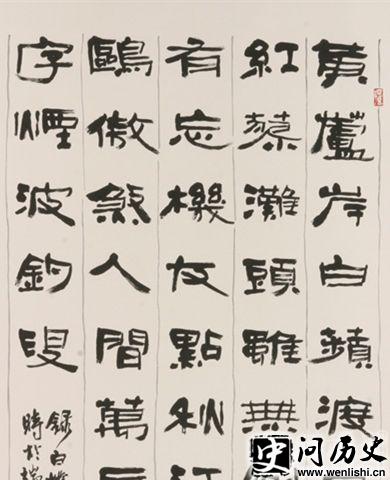 黃蘆岸白蘋渡
紅蓼灘頭雖無
有忘機友點秋江
鷗傲煞人間萬
字煙波釣叟
錄白
時於
问历史
www.wenlishi.com